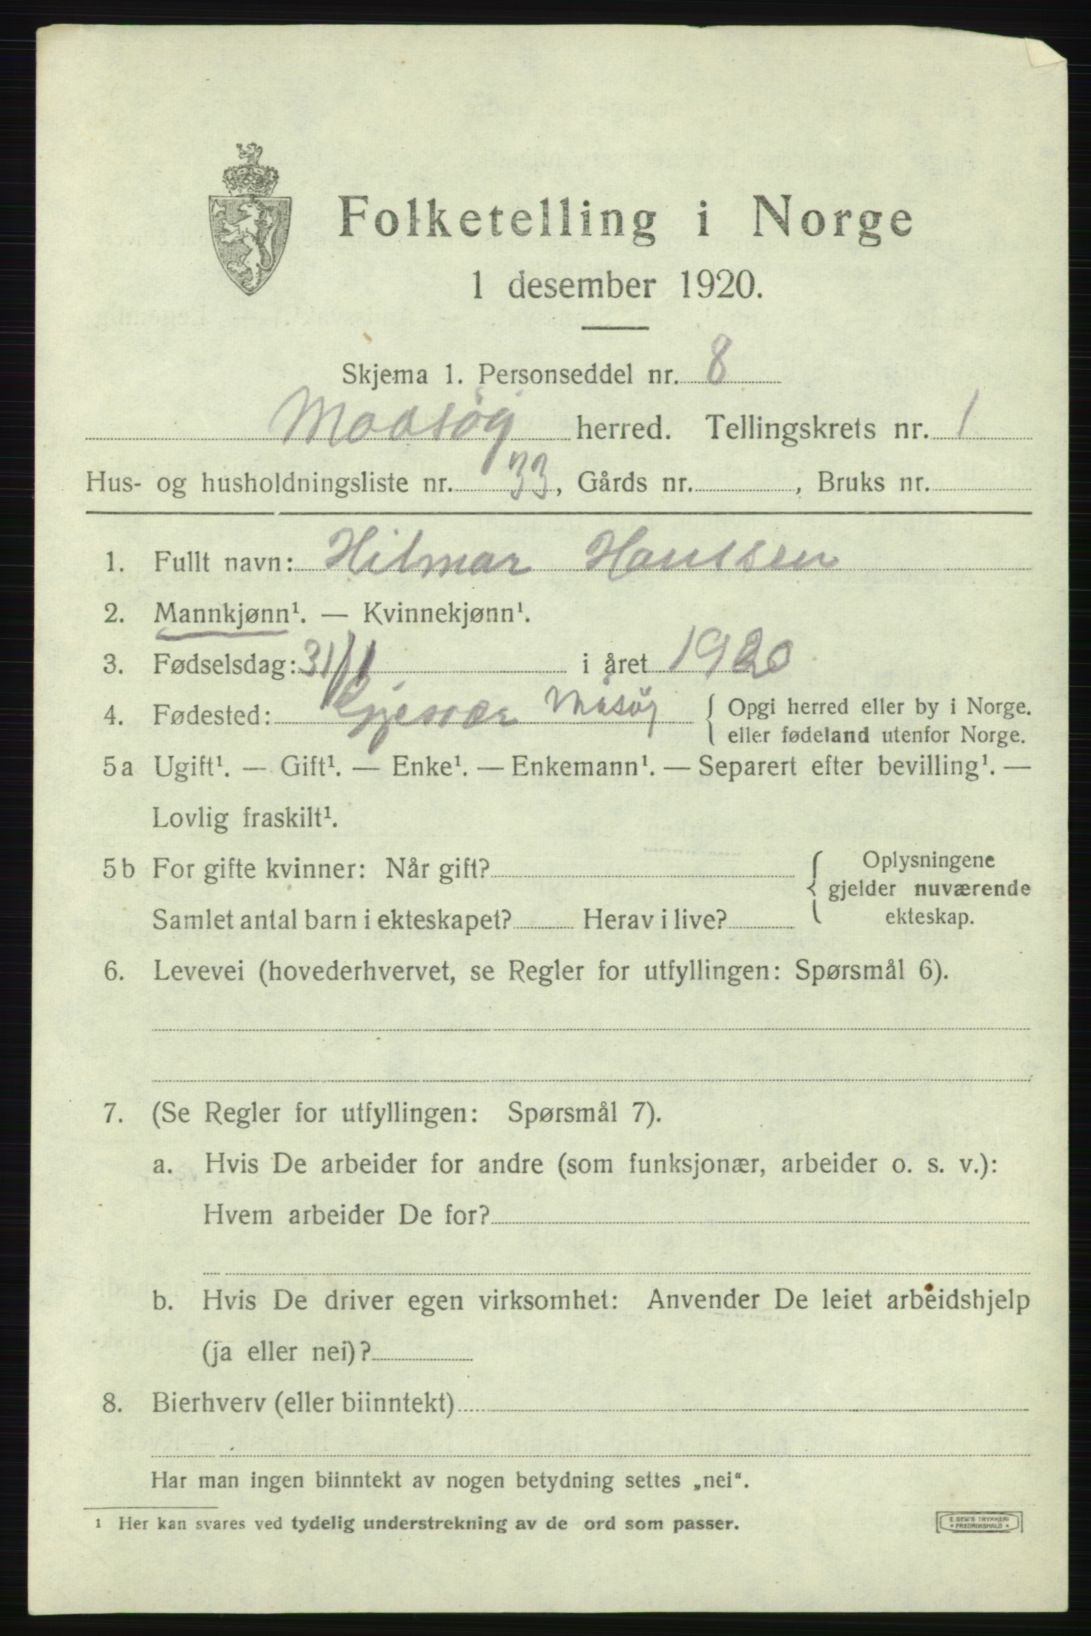 Folketelling i Norge
1 desember 1920.
Skjema 1. Personseddel nr. 8
Maasøy herred. Tellingskrets nr. 1
Hus- og husholdningsliste nr. 33, Gårds nr. , Bruks nr.
1. Fullt navn: Hilmar Hanssen
2. Mannkjønn¹. — Kvinnekjønn¹.
3. Fødselsdag: 31/1 i året 1920
4. Fødested: Gjesvær Måsøy { Opgi herred eller by i Norge.
eller fødeland utenfor Norge.
5a Ugift¹. — Gift¹. — Enke¹. — Enkemann¹. — Separert efter bevilling¹. —
Lovlig fraskilt¹.
5b For gifte kvinner: Når gift? { Oplysningene
gjelder nuværende
Samlet antal barn i ekteskapet? Herav i live? ekteskap.
6. Levevei (hovederhvervet, se Regler for utfyllingen: Spørsmål 6).
7. (Se Regler for utfyllingen: Spørsmål 7).
a. Hvis De arbeider for andre (som funksjonær, arbeider o. s. v.):
Hvem arbeider De for?
b. Hvis De driver egen virksomhet: Anvender De leiet arbeidshjelp
(ja eller nei)?
8. Bierhverv (eller biinntekt)
Har man ingen biinntekt av nogen betydning settes „nei“.
¹ Her kan svares ved tydelig understrekning av de ord som passer.
E. SEM'S TRYKKERI
• FREDRIKSHALD •